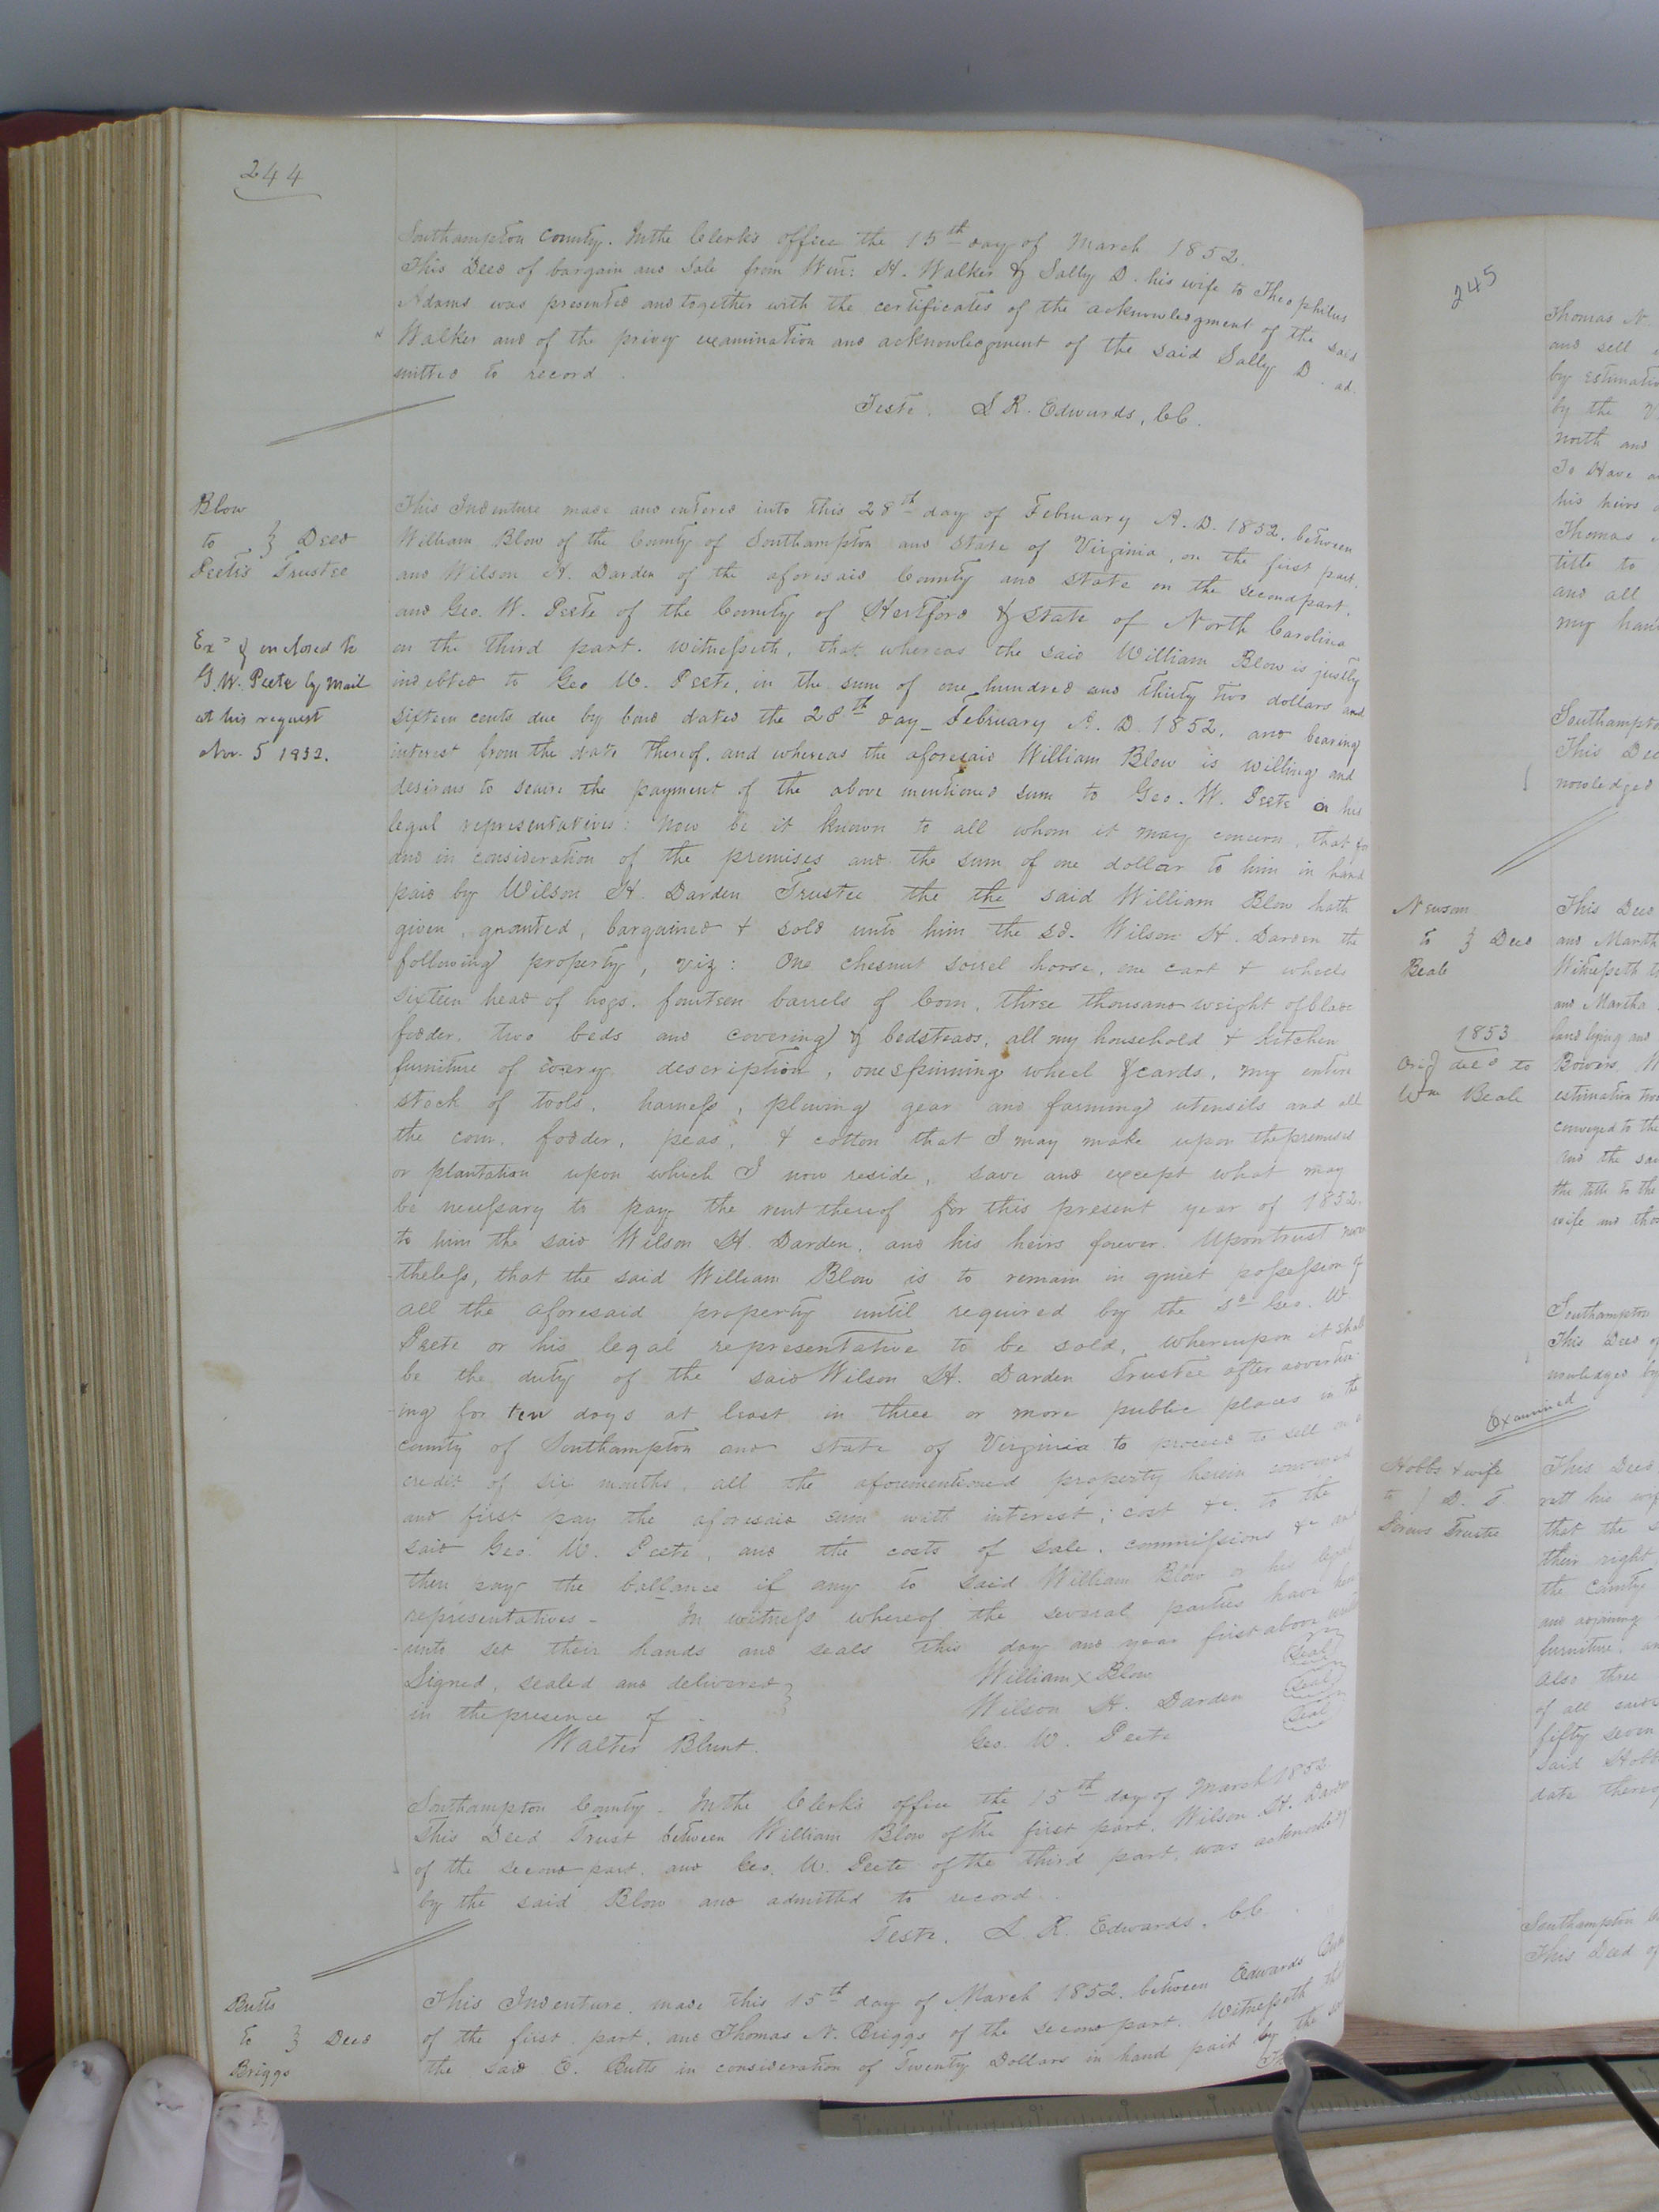 244
Southampton County. In the Clerk's office the 15th day of March 1852.
This Deed of bargain and Sale from Wm: H. Walker & Sally D. his wife to Theophilus
Adams was presented and together with the certificates of the acknowledgment of the said
Walker and of the privy examination and acknowledgment of the said Sally D. ad-
mitted to record.
Teste. L R. Edwards, CC.
Blow
to } Deed
Peete's Trustee
Exd & enclosed to
G. W. Peete by mail
at his request
Nov. 5 1852.
This Indenture made and entered into this 28th day of February A. D. 1852. between
William Blow of the County of Southampton and State of Virginia, on the first part.
and Wilson H. Darden of the aforesaid County and State on the second part.
and Geo. W. Peete of the County of Hertford & State of North Carolina
on the third part. witnesseth, that whereas the said William Blow is justly
indebted to Geo W. Peete, in the sum of one hundred and thirty two dollars and
fifteen cents due by bond dated the 28th day February A. D. 1852. and bearing
interest from the date thereof. and whereas the aforesaid William Blow is willing and
desirous to secure the payment of the above mentioned sum to Geo. W. Peete or his
legal representatives: Now be it known to all whom it may concern, that for
and in consideration of the premises and the sum of one dollar to him in hand
paid by Wilson H. Darden Trustee the the said William Blow hath
given, granted, bargained & sold unto him the sd. Wilson H. Darden the
following property, viz: One chesnut sorrel horse, one cart & wheels
sixteen head of hogs. fourteen barrels of Corn, three thousand weight of blade
fodder. two beds and covering & bedsteads, all my household & kitchen
furniture of every description, one spinning wheel & cards, my entire
stock of tools, harness, plowing gear and farming utensils and all
the corn, fodder, peas, & cotton that I may make upon the premises
or plantation upon which I now reside, save and except what may
be necessary to pay the rent thereof for this present year of 1852.
to him the said Wilson H. Darden, and his heirs forever. Upon trust never
-theless, that the said William Blow is to remain in quiet possession of
all the aforesaid property until required by the sd Geo. W.
Peete or his legal representative to be sold, whereupon it shall
be the duty of the said Wilson H. Darden Trustee after advertis-
-ing for ten days at least in three or more public places in the
county of Southampton and state of Virginia to proceed to sell on a
credit of six months, all the aforementioned property herein conveyed
and first pay the aforesaid sum with interest; cost &c. to the
said Geo. W. Peete, and the costs of sale, commissions &c and
then pay the ballance if any to said William Blow or his legal
representatives - In witness whereof the several parties have here
-unto set their hands and seals this day and year first above
Signed, sealed and delivered }
in the presence of
Walter Blunt.
William X Blow Seal
Wilson H. Darden Seal
Geo. W. Peete Seal
Southampton County. In the Clerk's office the 15th day of March 1852.
This Deed Trust between William Blow of the first part, Wilson H. Darden
of the second part, and Geo. W. Peete of the third part, was acknowledg
by the said Blow and admitted to record.
Teste. L. R. Edwards, CC
Butts
to } Deed
Briggs
This Indenture, made this 15th day of March 1852. between Edwards Butts
of the first part, and Thomas N. Briggs of the second part. Witnesseth that
the said E. Butts in consideration of Twenty Dollars in hand paid by the
245
Thomas N.
and sell
by estimatio
by the
north and
To Have a
his heirs
Thomas
title to
and all
my han
Southampto
This Dee
nowledged
Newsom
to } Deed
Beale
1853
Orig deed to
Wm Beale
This Deed
and Marth
Witnesseth t
and Martha
land lying and
Bowers,
estimation
conveyed to the
And the sai
the title to the
wife and tho
Southampton
This Deed of
nowledged by
Examined
Hobbs & wife
to } D. T.
Trustee
This Deed
that the s
their right
the County
and adjoining
furniture, an
Also three
of all
fifty seven
said Hobb
date there
Southampton
This Deed of